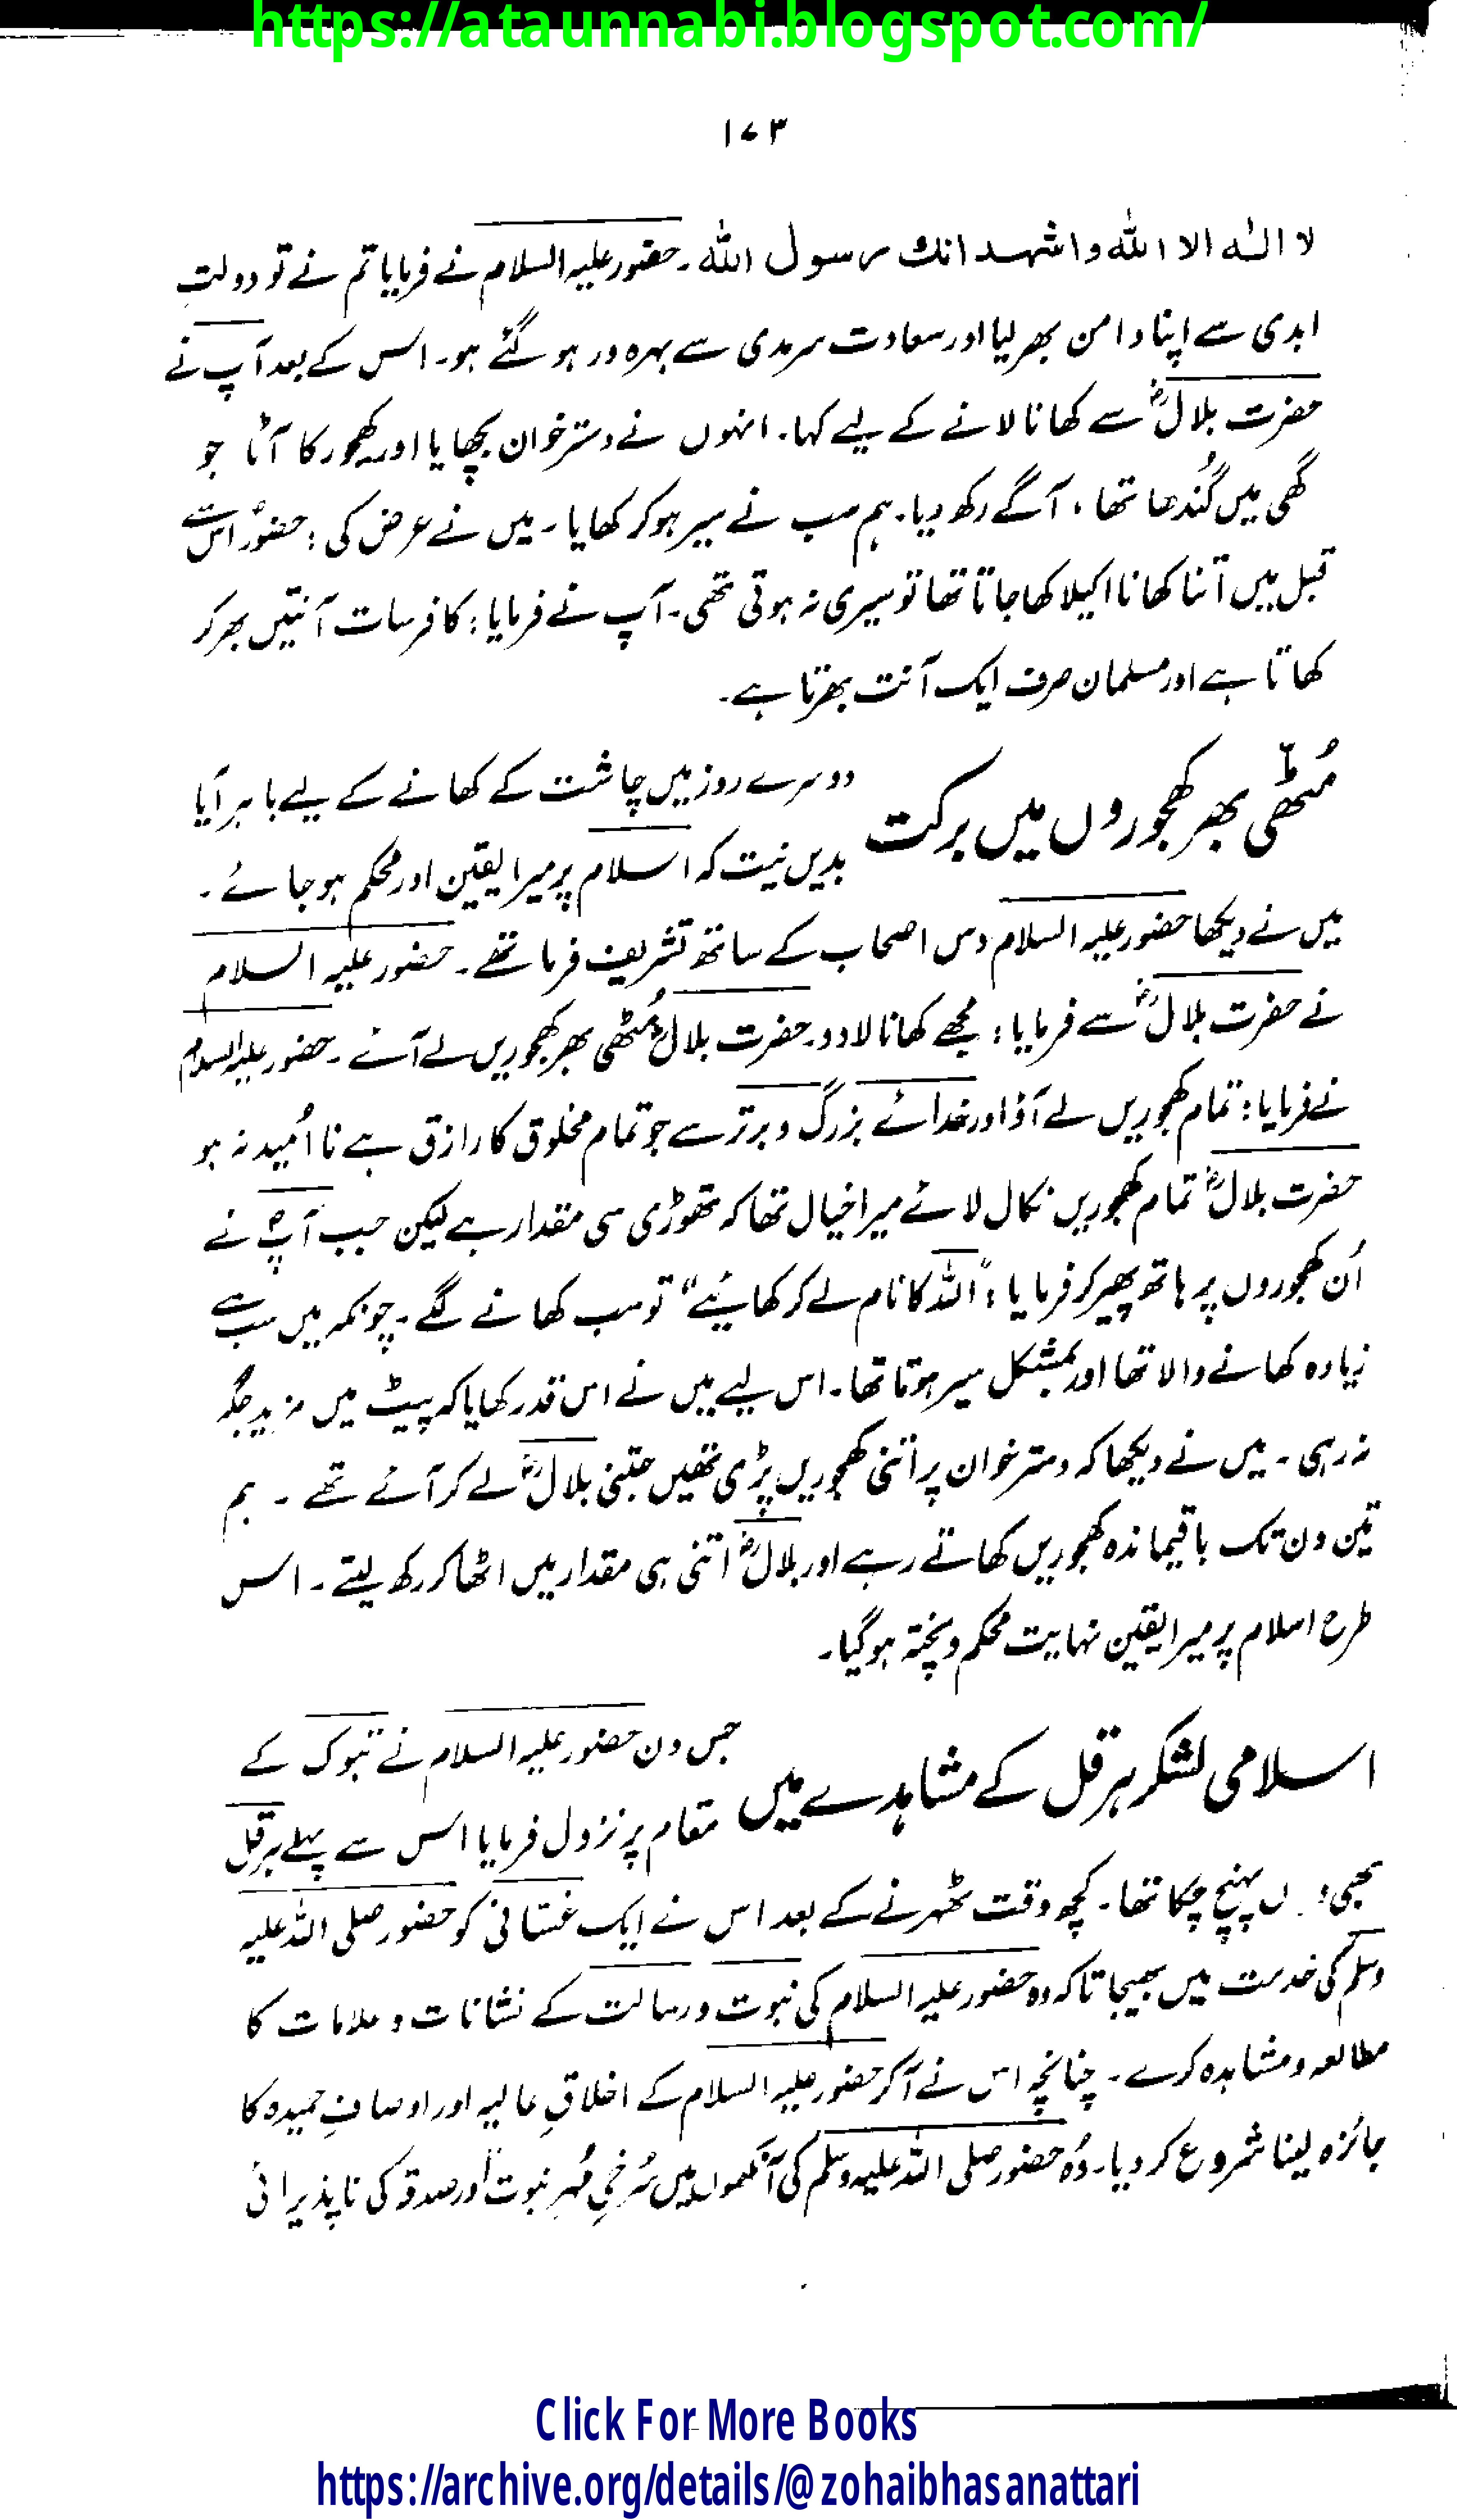 https://ataunnabi.blogspot.com/
۱۷۳
لا الٰه الا الله واشهد انك رسول الله۔ حضور علیہ السلام نے فرمایا تم نے تو دولتِ
ابدی سے اپنا دامن بھر لیا اور سعادت سرمدی سے بہرہ ور ہو گئے ہو۔ اس کے بعد آپ نے
حضرت بلالؓ سے کھانا لانے کے لیے کہا۔ انہوں نے دسترخوان بچھایا اور کھجور کا آٹا جو
گھی میں گُندھا تھا، آگے رکھ دیا۔ ہم سب نے سیر ہو کر کھایا۔ میں نے عرض کی: حضورؐ اس سے
قبل میں اتنا کھانا اکیلا کھا جاتا تھا تو سیری نہ ہوتی تھی۔ آپ نے فرمایا: کافر سات آنتیں بھر کر
کھاتا ہے اور مسلمان صرف ایک آنت بھرتا ہے۔
مُٹھّی بھر کھجوروں میں برکت
دوسرے روز میں چاشت کے کھانے کے لیے باہر آیا
بدیں نیت کہ اسلام پر میرا یقین اور محکم ہو جائے۔
میں نے دیکھا حضور علیہ السلام دس اصحاب کے ساتھ تشریف فرما تھے۔ حضور علیہ السلام
نے حضرت بلالؓ سے فرمایا: مجھے کھانا لا دو۔ حضرت بلالؓ مُٹھی بھر کھجوریں لے آئے۔ حضور علیہ السلام
نے فرمایا: تمام کھجوریں لے آؤ اور خدائے بزرگ و برتر سے جو تمام مخلوق کا رازق ہے نا اُمید نہ ہو
حضرت بلالؓ تمام کھجوریں نکال لائے میرا خیال تھا کہ تھوڑی سی مقدار ہے لیکن جب آپؐ نے
اُن کھجوروں پر ہاتھ پھیر کر فرمایا: "اللہ کا نام لے کر کھائیے" تو سب کھانے لگے۔ چونکہ میں سب سے
زیادہ کھانے والا تھا اور بمشکل سیر ہوتا تھا۔ اس لیے میں نے اس قدر کھایا کہ پیٹ میں مزید جگہ
نہ رہی۔ میں نے دیکھا کہ دسترخوان پر اتنی کھجوریں پڑی تھیں جتنی بلالؓ لے کر آئے تھے۔ ہم
تین دن تک باقیماندہ کھجوریں کھاتے رہے اور بلالؓ اتنی ہی مقدار میں اٹھا کر رکھ لیتے۔ اس
طرح اسلام پر میرا یقین نہایت محکم و پختہ ہو گیا۔
اسلامی لشکر ہرقل کے مشاہدے میں
جس دن حضور علیہ السلام نے تبوک کے
مقام پر نزول فرمایا اس سے پہلے ہرقل
بھی پہنچ چکا تھا۔ کچھ وقت ٹھہرنے کے بعد اس نے ایک غسّانی کو حضور صلی اللہ علیہ
وسلم کی خدمت میں بھیجا تاکہ وہ حضور علیہ السلام کی نبوت و رسالت کے نشانات و علامات کا
مطالعہ و مشاہدہ کرے۔ چنانچہ اس نے آکر حضور علیہ السلام کے اخلاقِ عالیہ اور اوصافِ حمیدہ کا
جائزہ لینا شروع کر دیا۔ وُہ حضور صلی اللہ علیہ وسلم کی آنکھوں میں سُرخی مُہرِ نبوت اور صدقہ کی ناپذیرائی
Click For More Books
https://archive.org/details/@zohaibhasanattari